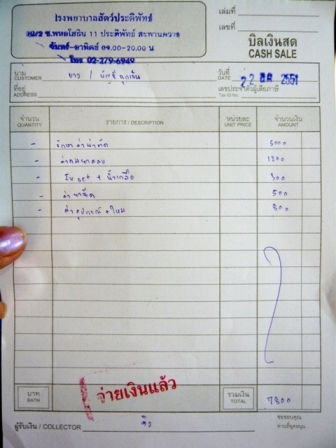 โรงพยาบาลสัตว์ประดิพัทธ์
ซ.พหลโยธิน 11 ประดิพัทธ์ สะพานควาย
จันทร์-อาทิตย์ 09.00-20.00 น.
โทร 02-279-6949
เล่มที่
เลขที่
บิลเงินสด
CASH SALE
นาม
CUSTOMER
วันที่
DATE
22 2551
ที่อยู่
ADDRESS
เลขประจำตัวผู้เสียภาษี
Tax ID No.
จำนวน
QUANTITY
รายการ / DESCRIPTION
หน่วยละ
UNIT PRICE
จำนวนเงิน
AMOUNT
- 5000
- ค่าดมยาสลบ
- In set + น้ำเกลือ 300
- ค่ายาฉีด 500
- ค่าอุปกรณ์ + ไหม 800
บาท
BATH
จ่ายเงินแล้ว
รวมเงิน
TOTAL
7800
ผู้รับเงิน / COLLECTOR
ขอขอบคุณ
ท่านที่อุดหนุน